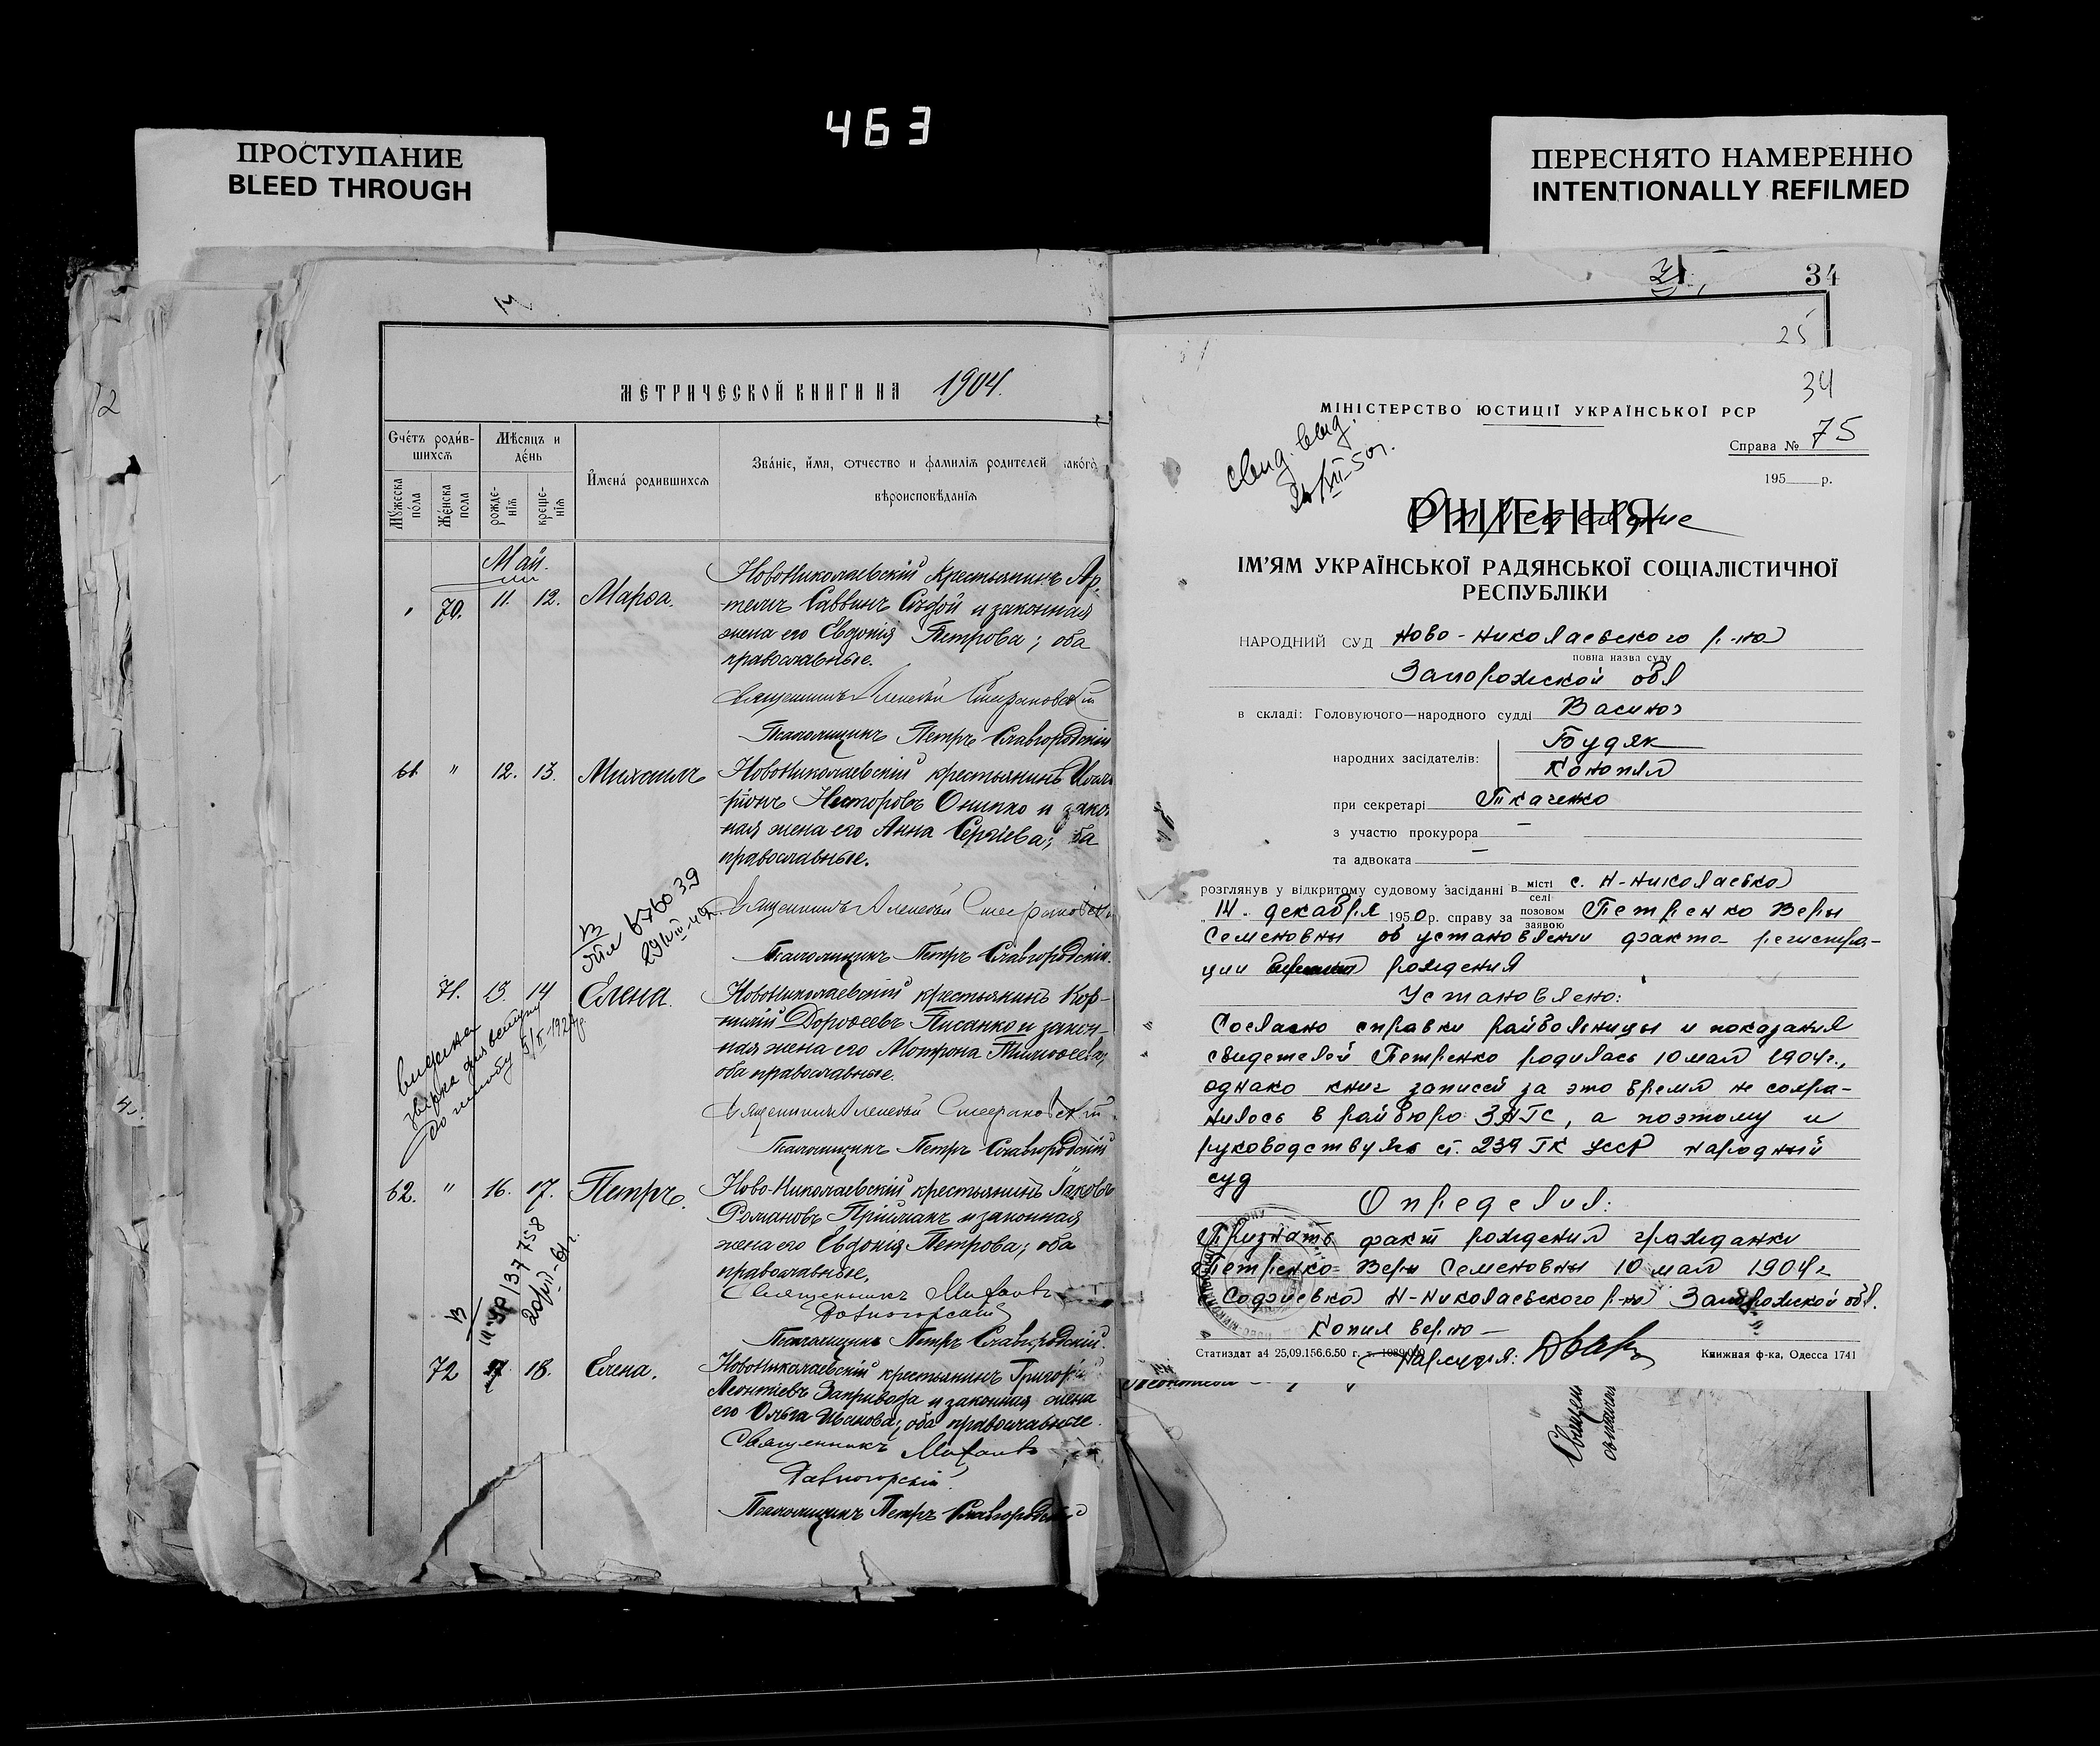 463
ПРОСТУПАНИЕ
BLEED THROUGH
ПЕРЕСНЯТО НАМЕРЕННО
INTENTIONALLY REFILMED
12
МЕТРИЧЕСКОЙ КНИГИ НА 1904.
Счетъ родив-
шихся
Мѣсяцъ и
день
Мужеска
пола
Женска
пола
рожде-
нія
креще-
нія
Имена родившихся
Званіе, имя, отчество и фамилія родителей
вѣроисповѣданія
Май.
70. 11. 12. Марѳа.
Новониколаевскій крестьянинъ Ар-
темъ Саввинъ и законная
жена его Евдокія Петрова; оба
православные.
Священникъ Алексѣй
Псаломщикъ Петръ Славгородскій
61. " 12. 13. Михаилъ
Новониколаевскій крестьянинъ
Несторовъ Онипко и
ная жена его Анна Сергіева; оба
православные.
676039
Священникъ Алексѣй
Псаломщикъ Петръ Славгородскій.
71. 13. 14 Елена.
Новониколаевскій крестьянинъ Кор-
нилій Дороѳеевъ Писанко и закон-
ная жена его Мотрона Тимоѳеева,
оба православные.
Священникъ Алексѣй
Псаломщикъ Петръ Славгородскій
62. " 16. 17. Петръ.
Ново-Николаевскій крестьянинъ Іаковъ
Романовъ Пріймакъ и законная
жена его Евдокія Петрова; оба
православные.
Священникъ Михаилъ
Псаломщикъ Петръ Славгородскій.
72 17. 18. Елена.
Новониколаевскій крестьянинъ Григорій
Леонтіевъ и законная жена
его Ольга Иванова; оба православные.
Священникъ Михаилъ
Псаломщикъ Петръ Славгородскій
34
25
34
МІНІСТЕРСТВО ЮСТИЦІЇ УКРАЇНСЬКОЇ РСР
Справа № 75
195 р.
РІШЕННЯ
Определение
ІМ'ЯМ УКРАЇНСЬКОЇ РАДЯНСЬКОЇ СОЦІАЛІСТИЧНОЇ
РЕСПУБЛІКИ
НАРОДНИЙ СУД Ново-Николаевского р-на
повна назва суду
Запорожской обл
в складі: Головуючого—народного судді
народних засідателів: Будяк
Конопля
при секретарі Ткаченко
з участю прокурора —
та адвоката —
розглянув у відкритому судовому засіданні в місті селі с. Н-Николаевка
„14. декабря 1950 р. справу за позовом заявою Петренко Веры
Семеновны об установлении факта регистра-
ции рождения
Установлено:
Согласно справки райбольницы и показания
свидетелей Петренко родилась 10 мая 1904г.,
однако книг записей за это время не сохра-
нилось в райбюро ЗАГС, а поэтому и
руководствуясь ст. 239 ГК УССР народный
суд
Определил:
Признать факт рождения гражданки
Петренко Веры Семеновны 10 мая 1904г
с Софиевка Н-Николаевского р-на Запорожской обл.
Копия верно —
Нарсудья:
Статиздат а4 25,09.156.6.50 г.
Книжная ф-ка, Одесса 1741